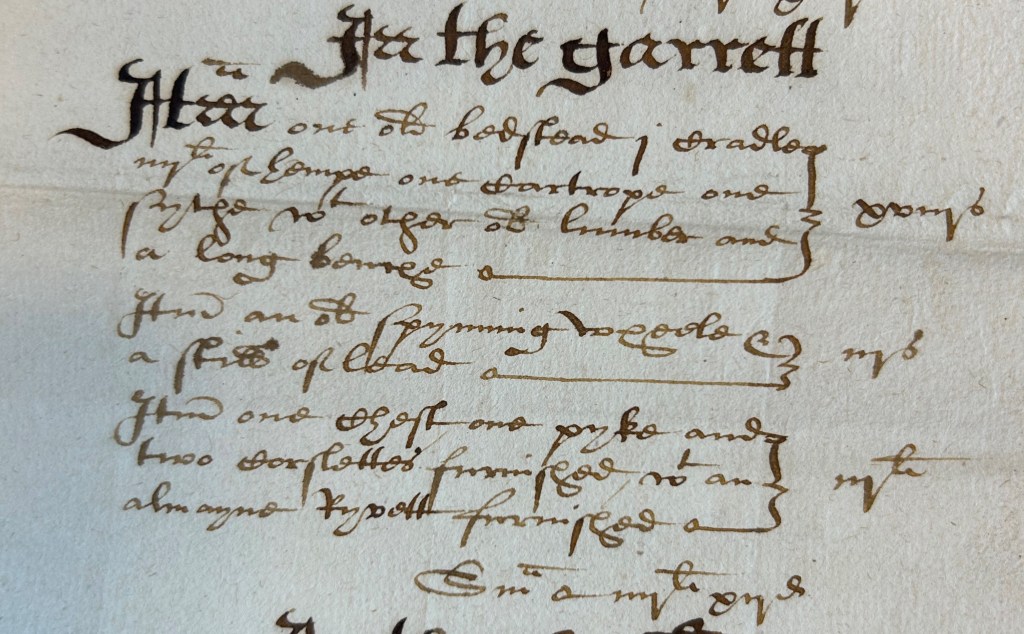 In the garrett
Itm one old bedstead j cradle
iiij li of hempe one cartrope one
sythe wt other old lumber and xviijs
a long benche
Itm an old spynning wheele &
a still of lead iijs
Itm one chest one pyke and
two corslettes furnished wt an iij li
almayne Ryvett furnished
Sm iiij li xijd